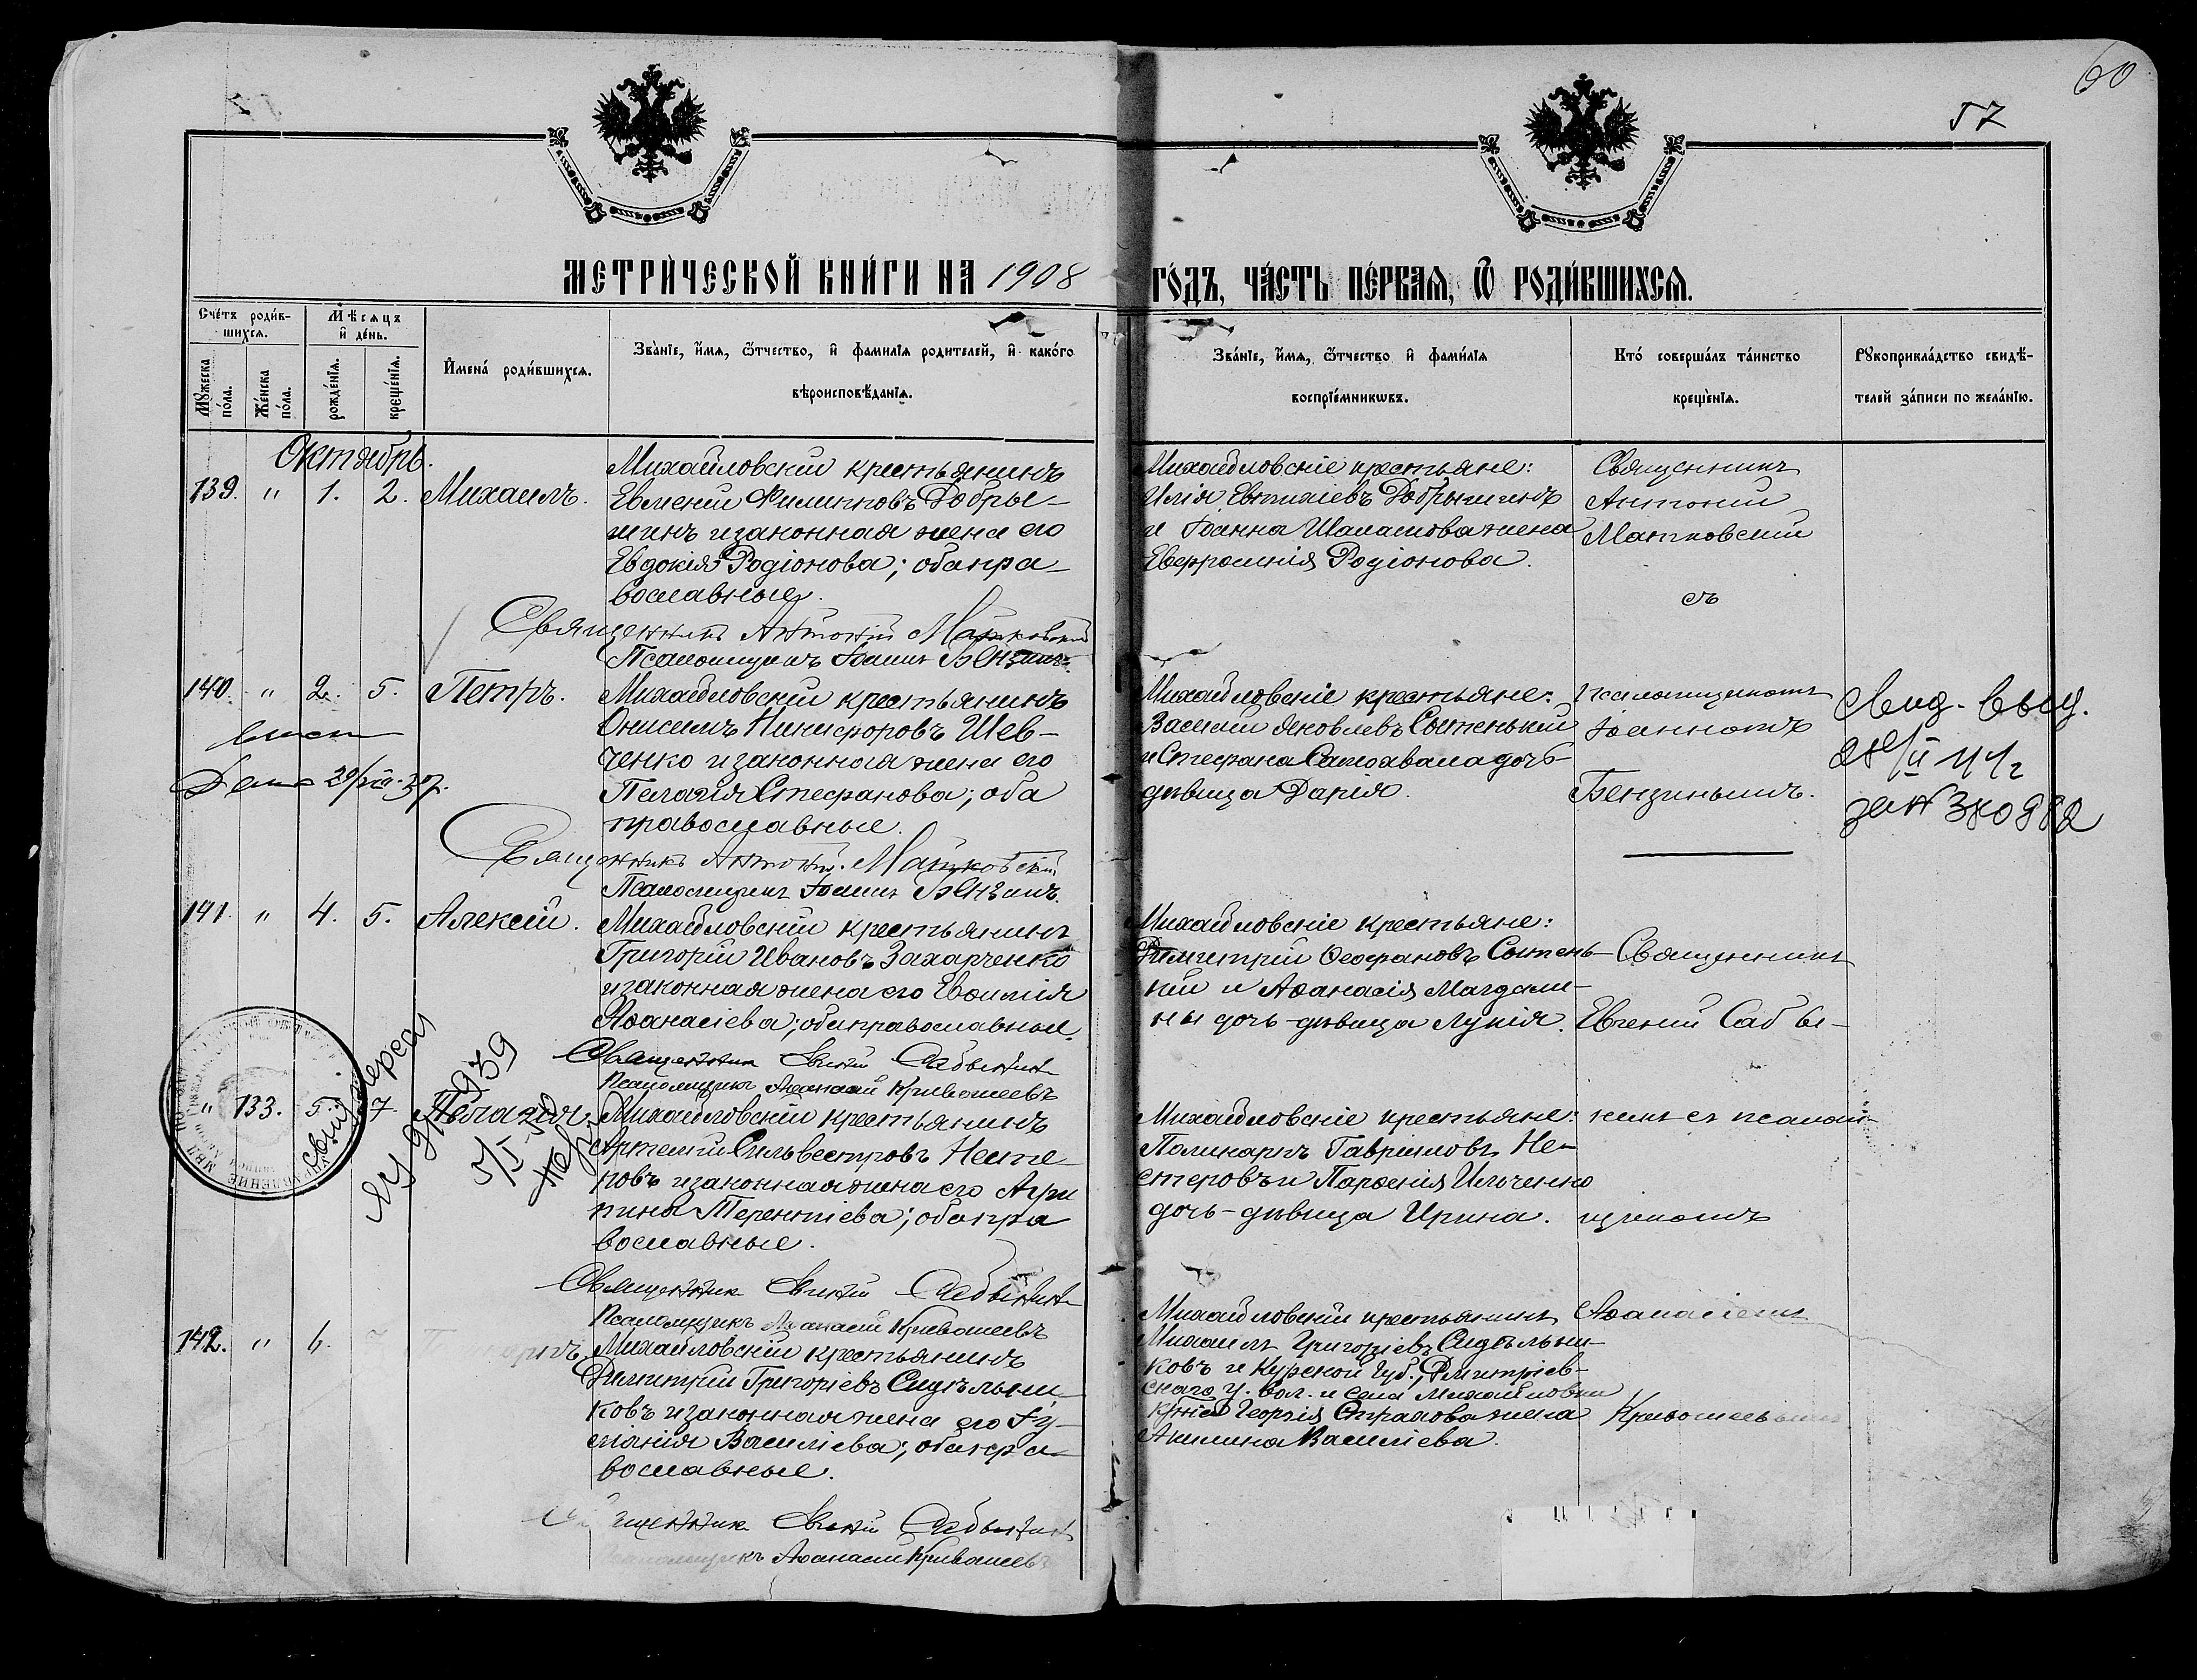 60
57
МЕТРИЧЕСКОЙ КНИГИ НА 1908 ГОДЪ, ЧАСТЬ ПЕРВАЯ, Ѿ РОДИВШИХСЯ.
Счетъ родив-
шихся.
Мѣсяцъ
и день.
Мужеска
пола.
Женска
пола.
рожденія.
крещенія.
Имена родившихся.
Званіе, имя, ѿтчество, и фамилія родителей, и какого
вѣроисповѣданія.
Званіе, имя, ѿтчество и фамилія
воспріемникwвъ.
Кто совершалъ таинство
крещенія.
Рукоприкладство свидѣ-
телей записи по желанію.
Октябрь.
139. " 1. 2. Михаилъ.
Михайловскій крестьянинъ
Евменій Филипповъ Добры-
шинъ и законная жена его
Евдокія Родіонова; оба пра-
вославные.
Священникъ Антоній Матковскій
Псаломщикъ Іоаннъ Бензинъ.
Михайловскіе крестьяне:
Илія Евтихіевъ Добрышинъ
и Іоанна Шалашова жена
Евфросинія Родіонова.
Священникъ
Антоній
Матковскій
съ
140. " 2. 5. Петръ.
Михайловскій крестьянинъ
Онисимъ Никифоровъ Шев-
ченко и законная жена его
Пелагія Стефанова; оба
православные.
Священникъ Антоній Матковскій
Псаломщикъ Іоаннъ Бензинъ.
Михайловскіе крестьяне:
Василій Яковлевъ Сытенькій
и Стефана Самохвала дочь
дѣвица Дарія.
псаломщикомъ
Іоанномъ
Бензинымъ.
141. " 4. 5. Алексій.
Михайловскій крестьянинъ
Григорій Ивановъ Захарченко
и законная жена его Евфимія
Аѳанасіева; оба православные.
Священникъ Евгеній Сабынинъ
Псаломщикъ Аѳанасій Кривошеевъ
Михайловскіе крестьяне:
Димитрій Ѳеофановъ Сытень-
кій и Аѳанасія Магдали-
ны дочь-дѣвица Лукія.
Священникъ
Евгеній Сабы-
" 133. 5. 7. Пелагія
Михайловскій крестьянинъ
Артемій Сильвестровъ
и законная жена его Агри
пина Терентіева; оба пра
вославные.
Священникъ Евгеній Сабынинъ
Псаломщикъ Аѳанасій Кривошеевъ
Михайловскіе крестьяне:
Поликарпъ Гавріиловъ Не-
стеровъ и Парѳенія Ильченко
дочь-дѣвица Ирина.
нинъ съ псалом-
щикомъ
142. " 6.
Михайловскій крестьянинъ
Димитрій Григоріевъ Сидѣльни-
ковъ и законная жена его Іу-
ліанія Василіева; оба пра-
вославные.
Священникъ Евгеній Сабынинъ
Псаломщикъ Аѳанасій Кривошеевъ
Михайловскій крестьянинъ
Михаилъ Григоріевъ Сидѣльни-
ковъ и Курской губ., Дмитріев-
скаго у. вол. и села Михайловки
Георгія Страхова жена
Акилина Василіева.
Аѳанасіемъ
Кривошеевымъ